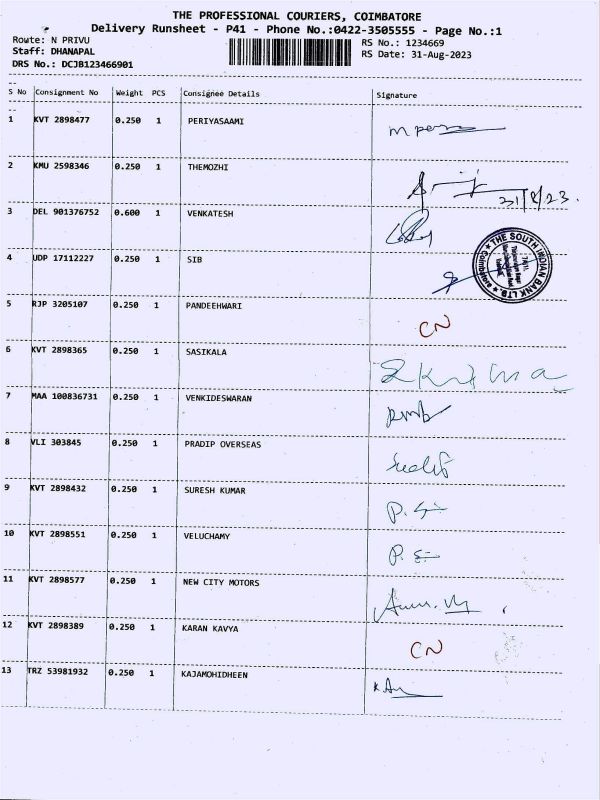 THE PROFESSIONAL COURIERS, COIMBATORE
Delivery Runsheet - P41 - Phone No.:0422-3505555 - Page No.:1
Route: N PRIVU RS No.: 1234669
Staff: DHANAPAL RS Date: 31-Aug-2023
DRS No.: DCJB123466901
S No Consignment No Weight PCS Consignee Details Signature
1 KVT 2898477 0.250 1 PERIYASAAMI
2 KMU 2598346 0.250 1 THEMOZHI
31/8/23.
3 DEL 901376752 0.600 1 VENKATESH
4 UDP 17112227 0.250 1 SIB
THE SOUTH INDIAN BANK LTD.
Coimbatore
5 RJP 3205107 0.250 1 PANDEEHWARI CN
6 KVT 2898365 0.250 1 SASIKALA
7 MAA 100836731 0.250 1 VENKIDESWARAN
8 VLI 303845 0.250 1 PRADIP OVERSEAS
9 KVT 2898432 0.250 1 SURESH KUMAR
10 KVT 2898551 0.250 1 VELUCHAMY
11 KVT 2898577 0.250 1 NEW CITY MOTORS
12 KVT 2898389 0.250 1 KARAN KAVYA CN
13 TRZ 53981932 0.250 1 KAJAMOHIDHEEN